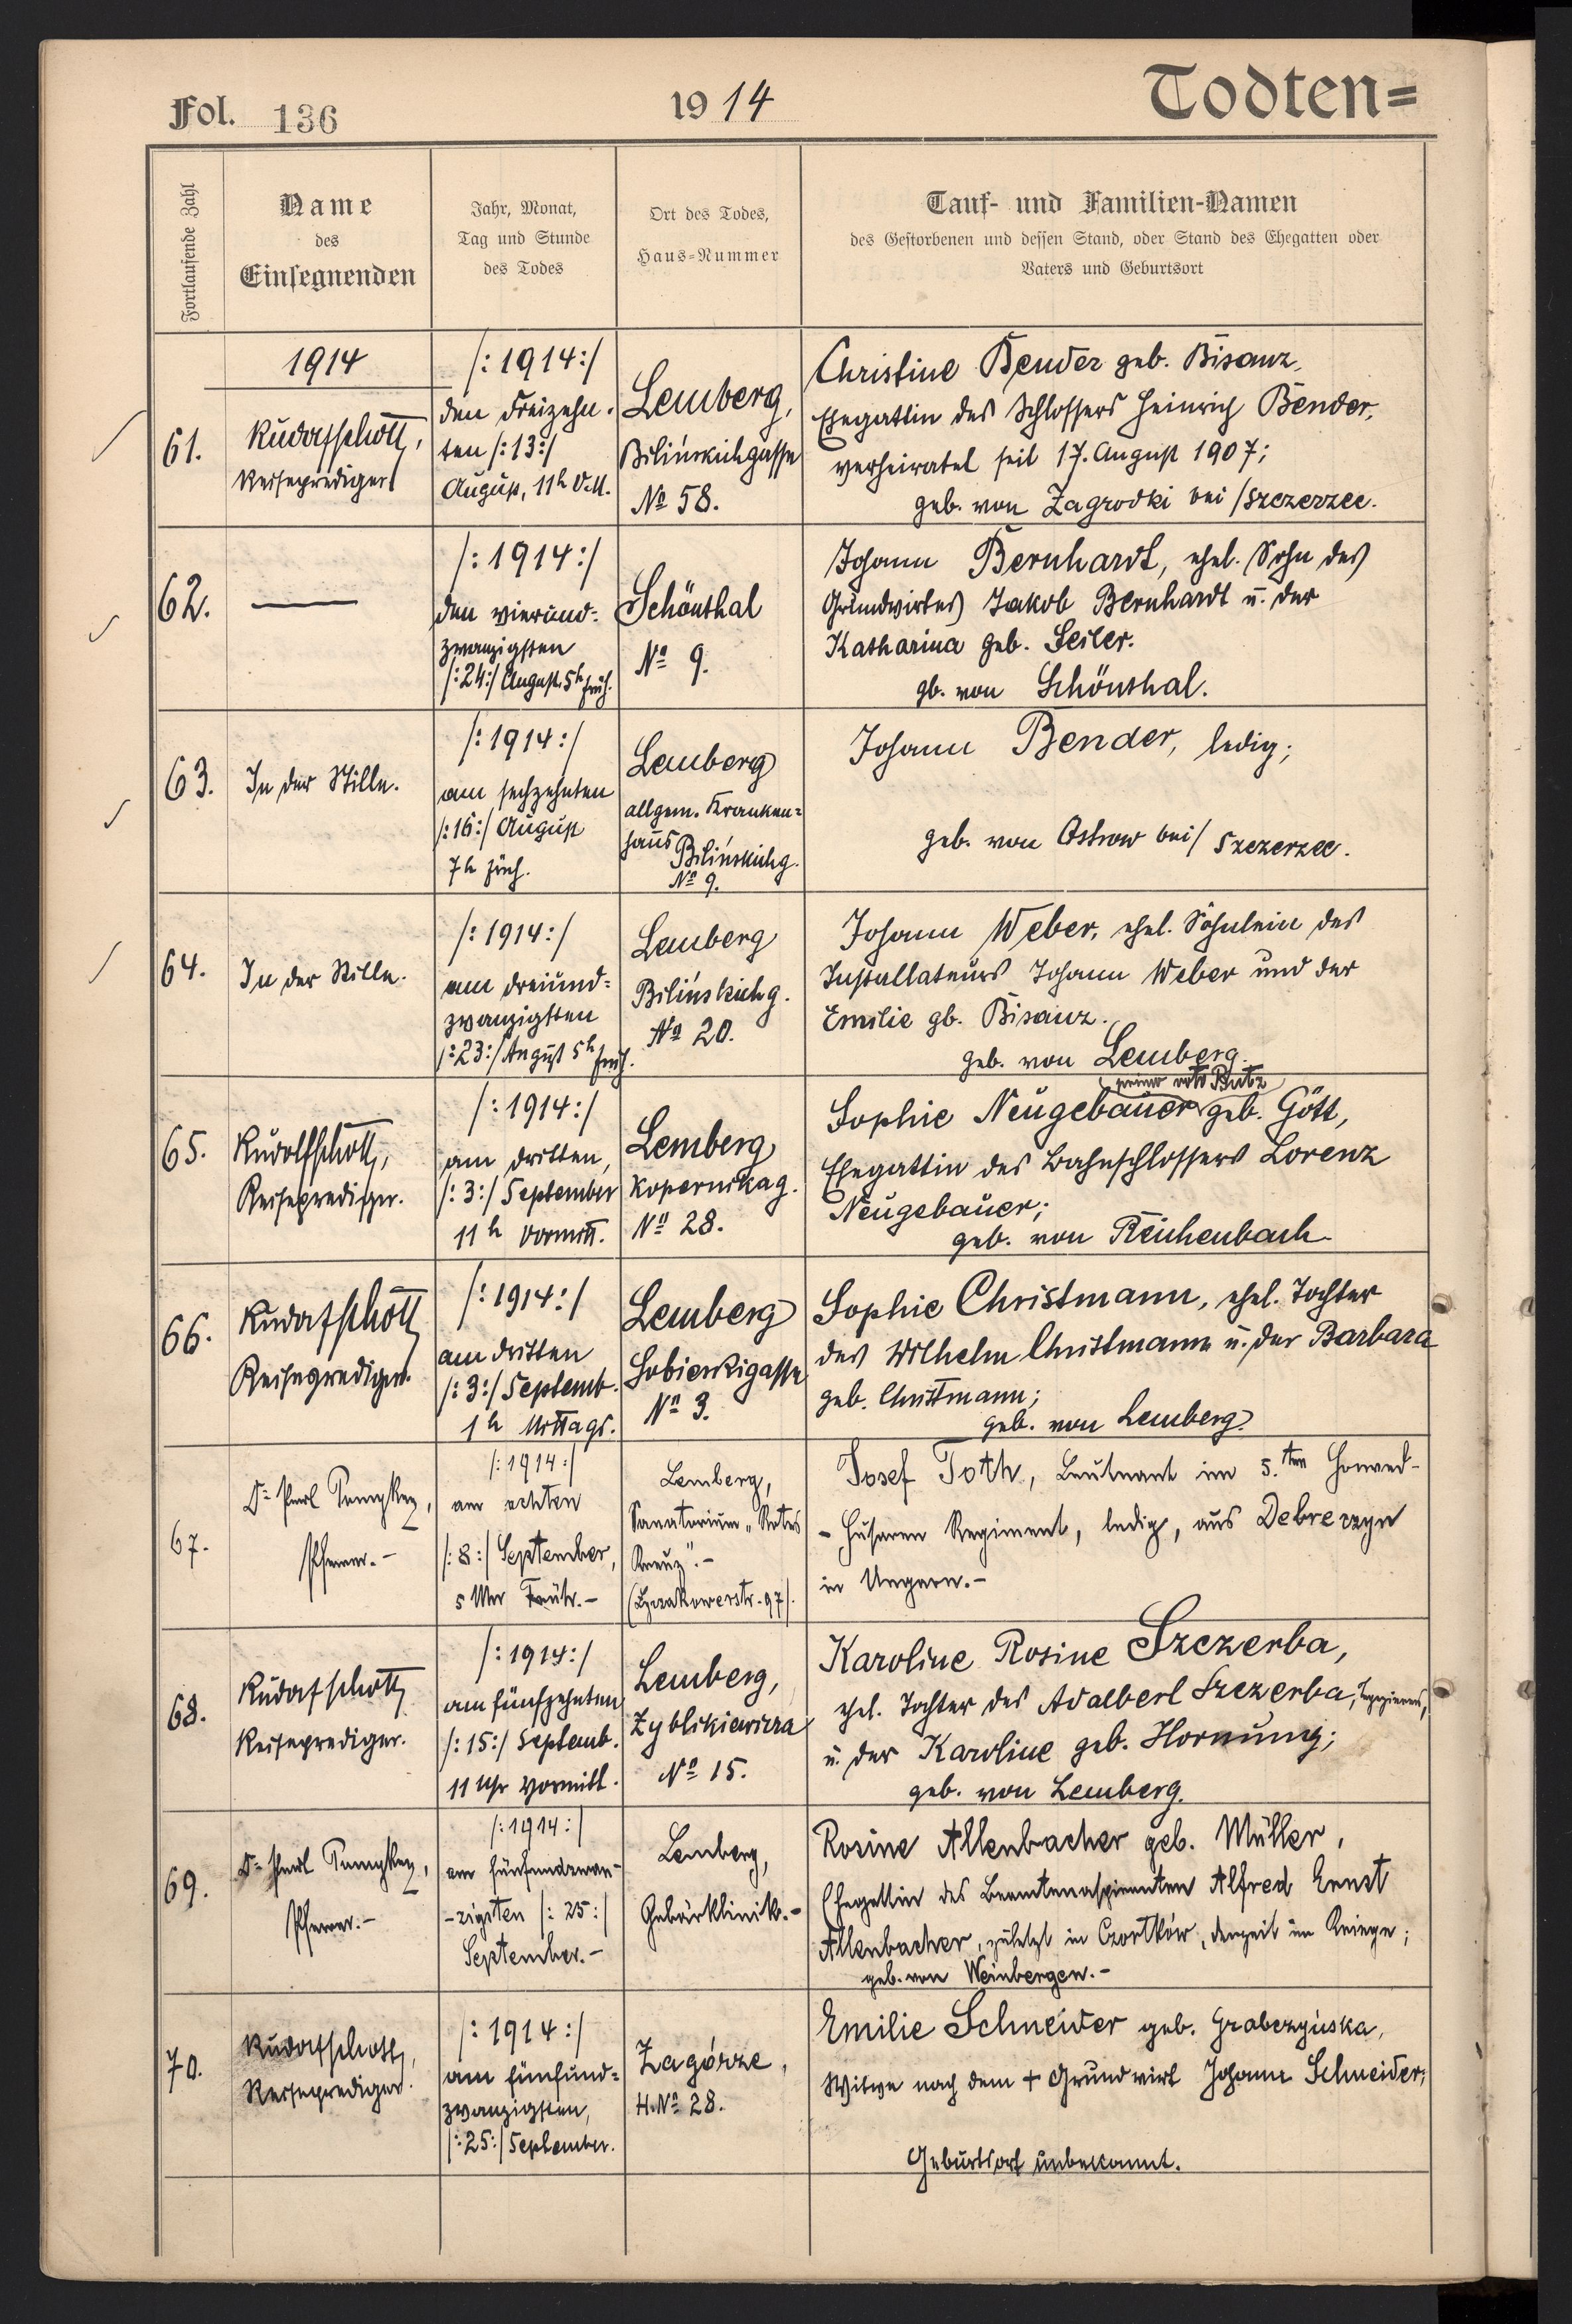 Fol. 136
1914
Todten=
Fortlaufende Zahl
Name
des
Einsegnenden
Jahr, Monat,
Tag und Stunde
des Todes
Ort des Todes,
Haus-Nummer
Tauf- und Familien-Namen
des Gestorbenen und dessen Stand, oder Stand des Ehegatten oder
Vaters und Geburtsort
1914
61.
Rudolf Schott,
Reiseprediger
/:1914:/
den dreizehn-
ten /:13:/
August, 11h V.M.
Lemberg,
Bilińskichgasse
No 58.
Christine Bender geb. Bisanz,
Ehegattin des Schlossers Heinrich Bender,
verheiratet seit 17. August 1907;
geb. von Zagrodki bei Szczerzec.
62.
—
/:1914:/
den vierund-
zwanzigsten
/:24:/ August. 5h früh.
Schönthal
No 9.
Johann Bernhardt, ehel. Sohn des
Grundwirtes Jakob Bernhardt u. der
Katharina geb. Seiler.
gb. von Schönthal.
63.
In der Stille.
/:1914:/
am sechzehnten
/:16:/ August
7h früh.
Lemberg
allgem. Kranken=
haus Bilińskichg.
No 9.
Johann Bender, ledig;
geb. von Ostrow bei Szczerzec.
64.
In der Stille.
/:1914:/
am dreiund=
zwanzigsten
/:23:/ August 5h früh.
Lemberg
Bilińskichg.
No 20.
Johann Weber, ehel. Söhnlein des
Installateurs Johann Weber und der
Emilie gb. Bisanz.
geb. von Lemberg.
65.
Rudolf Schott,
Reiseprediger.
/:1914:/
am dritten,
/:3:/ September
11h Vormitt.
Lemberg
Kopernikag.
No 28.
(primo voto Butz)
Sophie Neugebauer geb. Gött,
Ehegattin des Bahnschlossers Lorenz
Neugebauer;
geb. von Reichenbach.
66.
Rudolf Schott
Reiseprediger.
/:1914:/
am dritten
/:3:/ Septemb.
1h Mittags.
Lemberg
Sobieskigasse
No 3.
Sophie Christmann, ehel. Tochter
des Wilhelm Christmann u. der Barbara
geb. Christmann;
geb. von Lemberg.
67.
Dr
Pfarrer.-
/:1914:/
am achten
/:8:/ September,
5 Uhr Früh.-
Lemberg,
Sanatorium „Rotes
Kreuz".-
(Łyczakowerstr. 97).
Josef Toth, Leutnant im 5.ten Honved-
- Husaren Regiment, ledig, aus Debreczyn
in Ungarn.-
68.
Rudolf Schott
Reiseprediger.
/:1914:/
am fünfzehnten
/:15:/ Septemb.
11 Uhr Vormitt.
Lemberg,
Zyblikiewicza
No 15.
Karoline Rosine Szczerba,
ehel. Tochter des Adalbert Szczerba, Tapezierers,
u. der Karoline geb. Hornung;
geb. von Lemberg.
69.
Dr
Pfarrer.-
/:1914:/
am fünfundzwan-
-zigsten /:25:/
September.-
Lemberg,
Gebärklinik.-
Rosine Allenbacher geb. Müller,
Ehegattin des Beamtenaspiranten Alfred Ernst
Allenbacher, zuletzt in Czortków, derzeit im Kriege;
geb. von Weinbergen.-
70.
Rudolf Schott,
Reiseprediger.
/:1914:/
am fünfund=
zwanzigsten,
/:25:/ September.
Zagórze,
H.No 28.
Emilie Schneider geb. Grabczyńska,
Witwe nach dem + Grundwirt Johann Schneider;
Geburtsort unbekannt.